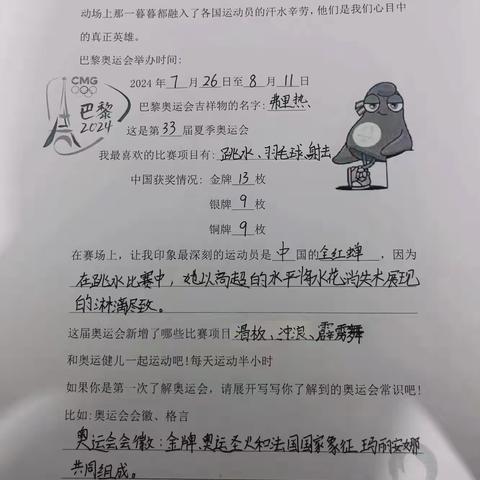 动场上那一幕幕都融入了各国运动员的汗水辛劳,他们是我们心目中
的真正英雄。
巴黎奥运会举办时间:
CMG
巴黎
2024
2024 年 7 月 26 日至 8 月 11 日
巴黎奥运会吉祥物的名字:弗里热、
这是第 33 届夏季奥运会
我最喜欢的比赛项目有:跳水、羽毛球、射击
中国获奖情况: 金牌 13 枚
银牌 9 枚
铜牌 9 枚
在赛场上,让我印象最深刻的运动员是 中 国的全红婵,因为
在跳水比赛中,她以高超的水平将水花消失术展现
的淋漓尽致。
这届奥运会新增了哪些比赛项目 滑板、冲浪、霹雳舞
和奥运健儿一起运动吧!每天运动半小时
如果你是第一次了解奥运会,请展开写写你了解到的奥运会常识吧!
比如:奥运会会徽、格言
奥运会会徽:金牌、奥运圣火和法国国家象征 玛丽安娜
共同组成。